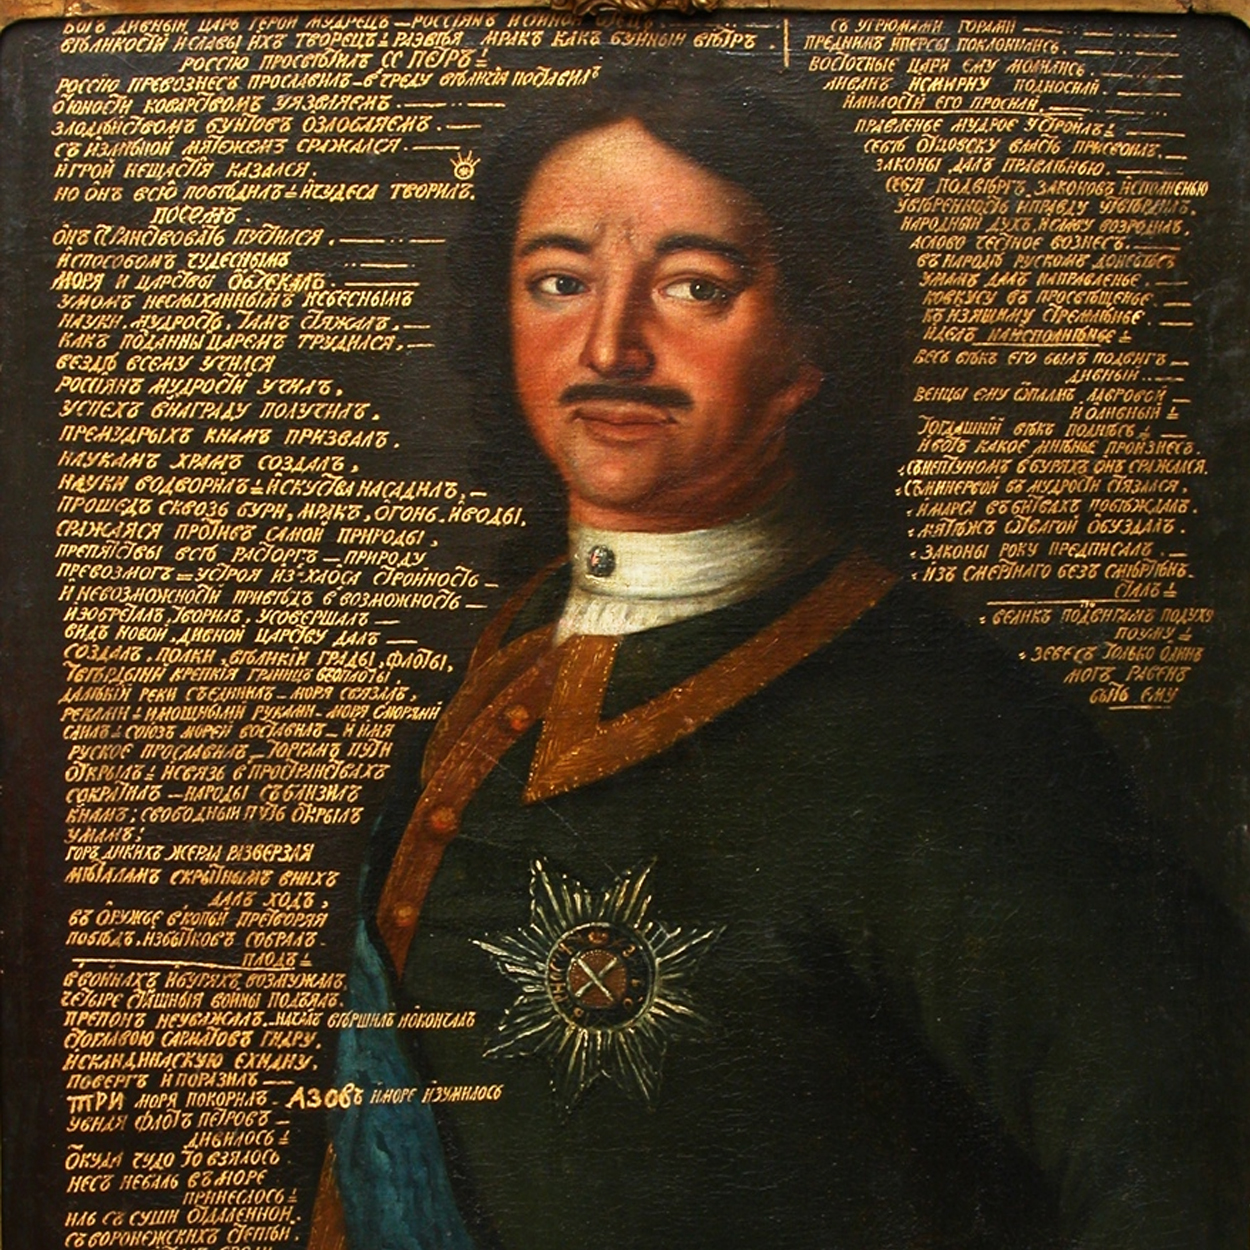 БОГЪ ДИВНЫЙ ЦАРЬ ГЕРОЙ МУДРЕЦЪ — РОССІЯНЪ
ВѢЛИКОСТИ И СЛАВЫ ИХЪ ТВОРЕЦЪ РАЗВѢЯ МРАКЪ КАКЪ БУЙНЫЙ ВѢТРЪ.
РОССІЮ ПРОСВѢТИЛЪ СЕ ПЕТРЪ
РОССІЮ ПРЕВОЗНЕСЪ ПРОСЛАВИЛЪ — В ЧРЕДУ ВѢЛИЧІЯ ПОСТАВИЛЪ
О ЮНОСТИ КОВАРСТВОМЪ УЯЗВЛЯЕМЪ.
ЗЛОДѢЙСТВОМЪ БУНТОВЪ ОЗЛОБЛЯЕМЪ.
СЪ ИЗМѢНОЙ МЯТЕЖЕМЪ СРАЖАЛСЯ.
ИГРОЙ НЕЩАСТІЯ КАЗАЛСЯ
НО ОНЪ ВСЮ ПОБѢДИЛЪ И ЧУДЕСА ТВОРИЛЪ.
ПОСЕМЪ.
ОНЪ СТРАНСТВОВАТЬ ПУСТИЛСЯ.
И СПОСОБОМЪ ЧУДЕСНЫМЪ
МОРЯ И ЦАРСТВЫ ОБТЕКАЛЪ.
УМОМЪ НЕСЛЫХАННЫМЪ НЕБЕСНЫМЪ
НАУКИ, МУДРОСТЬ, ТАМЪ СТЯЖАЛЪ.
КАКЪ ПОДАННЫ ЦАРЕМЪ ТРУДИЛСЯ.
ВЕЗДѢ ВСЕМУ УЧИЛСЯ
РОССІЯНЪ МУДРОСТИ УЧИЛЪ,
УСПЕХЪ ВНАГРАДУ ПОЛУЧИЛЪ.
ПРЕМУДРЫХЪ КНАМЪ ПРИЗВАЛЪ.
НАУКАМЪ ХРАМЪ СОЗДАЛЪ,
НАУКИ ВОДВОРИЛЪ ИСКУСТВА НАСАДИЛЪ,
ПРОШЕДЪ СКВОЗЬ БУРИ, МРАКЪ, ОГОНЬ И ВОДЫ,
СРАЖАЯСЯ ПРОТИВЪ САМОЙ ПРИРОДЫ,
ПРЕПЯТСТВЫ ВСѢ РАСТОРГЪ — ПРИРОДУ
ПРЕВОЗМОГЪ = УСТРОЯ ИЗ-ХАОСА СТРОЙНОСТЬ —
И НЕВОЗМОЖНОСТИ ПРИВѢДЪ В ВОЗМОЖНОСТЬ —
ИЗОБРЕТАЛЪ, ТВОРИЛЪ, УСОВЕРШАЛЪ —
ВИДЪ НОВОЙ ДИВНОЙ ЦАРСТВУ ДАЛЪ —
СОЗДАЛЪ, ПОЛКИ, ВѢЛИКІИ ГРАДЫ, ФЛОТЫ,
ТВЕРДЫНИ КРЕПКІЯ ГРАНИЦЪ
ДАЛЬНІИ РЕКИ СЪЕДИНИЛЪ — МОРЯ СВЯЗАЛЪ,
РЕКАМИ И МОЩНЫМИ РУКАМИ МОРЯ СМОРЯМИ
САМЪ СОЮЗЪ МОРЕЙ — И ИМЯ
РУСКОЕ ПРОСЛАВИЛЪ ТОРГАМЪ ПУТИ
ОТКРЫЛЪ И СВЯЗЬ В ПРОСТРАНСТВАХЪ
СОКРАТИЛЪ — НАРОДЫ СЪБЛИЗИЛЪ
КНАМЪ; СВОБОДНЫЙ ПУТЬ ОТКРЫЛЪ
УМАМЪ;
ГОРЪ ДИКИХЪ ЖЕРЛА РАЗВЕРЗАЯ
МЕТАЛАМЪ СКРЫТНЫМЪ ВНИХЪ
ДАЛЪ ХОДЪ,
ВЪ ОРУЖЬЕ В КОПЬИ ПРЕТВОРЯЯ
ПОБѢДЪ, ИЗБЫТКОВЪ СОБРАЛЪ
ПЛОДЪ
В ВОЙНАХЪ И БУРЯХЪ ВОЗМУЖАЛЪ
ЧЕТЫРЕ СТРАШНЫЯ ВОЙНЫ ПОДЪЯЛЪ.
ПРЕПОНЪ НЕУВАЖАЛЪ НАЧАЛЪ ВѢРШИЛЪ И ОКОНЧАЛЪ
СТОГЛАВОЮ САРМАТОВЪ ГИДРУ,
И СКАНДИНАСКУЮ ЕХИДНУ,
ПОВЕРГЪ И ПОРАЗИЛЪ —
ТРИ МОРЯ ПОКОРИЛЪ АЗОВЪ И МОРЕ ИЗУМИЛОСЬ
УВИДЯ ФЛОТЪ ПЕТРОВЪ —
ДИВИЛОСЬ
ОКУДА ЧУДО ТО ВЗЯЛОСЬ
НЕСЪ НЕБАЛЬ ВЪ МОРЕ
ПРИНЕСЛОСЬ
ИЛЬ СЪ СУШИ ОТДАЛЕННОЙ.
СЪ ВОРОНЕЖСКИХЪ СТЕПѢЙ.
СЪ УГРЮМАМИ ГОРАМИ
ПРЕДНИМЪ ИПЕРСЫ ПОКЛОНИЛИСЬ.
ВОСТОЧНЫЕ ЦАРИ ЕМУ МОЛИЛИСЬ
ЛИВАНЪ ИСМИРНУ ПОДНОСИЛИ
ИМИЛОСТИ ЕГО ПРОСИЛИ.
ПРАВЛЕНЬЕ МУДРОЕ УСТРОИЛЪ
СЕБѢ ОТЦОВСКУ ВЛАСТЬ ПРИСВОИЛЪ.
ЗАКОНЫ ДАЛЪ ПРАВЛѢНЬЮ.
СЕБЯ ПОДВѢРГЪ ЗАКОНОВЪ ИСПОЛНЕНЬЮ
УВѢРЕННОСТЬ ИПРАВДУ УТВѢРДИЛЪ.
НАРОДНЫЙ ДУХЪ, ИСЛАВУ ВОЗРОДИЛЪ,
АСЛОВО ЧЕСТНОЕ ВОЗНЕСЪ.
ВЪ НАРОДѢ РУСКОМЪ
УМАМЪ ДАЛЪ НАПРАВЛЕНЬЕ.
КОВКУСУ ВЪ ПРОСВѢЩЕНЬЕ
КЪ ИЗЯЩНМУ СТРЕМЛѢНЬЕ
ИДЕЛЪ НАИСПОЛНѢНЬЕ
ВЕСЬ ВѢКЪ ЕГО БЫЛЪ ПОДВИГЪ —
ДИВНЫЙ
ВЕНЦЫ ЕМУ СПАЛМЪ ЛАВРОВОЙ —
И ОЛИВНЫЙ
ТОГДАШНІЙ ВѢКЪ ПОДНЕСЪ —
И ВОТЪ КАКОЕ МНѢНЬЕ ПРОИЗНЕСЪ.
СЪ НЕПТУНОМЪ В БУРЯХЪ ОНЪ СРАЖАЛСЯ.
СЪ МИНЕРВОЙ ВЪ МУДРОСТИ СТЯЗАЛСЯ,
И МАРСА ВЪ БИТВАХЪ ПОБѢЖДАЛЪ.
МЯТѢЖЪ ОТВАГОЙ ОБУЗДАЛЪ.
ЗАКОНЫ РОКУ ПРЕДПИСАЛЪ
ИЗЪ СМЕРТНАГО БЕЗЪ СМѢРТѢНЪ
СТАЛЪ
ВЕЛИКЪ ПОДВИГАМЪ ПОДУХУ
ПОУМУ
ЗЕВЕСЪ ТОЛЬКО ОДИНЪ
МОГЪ РАВЕНЪ
БЫТЬ ЕМУ